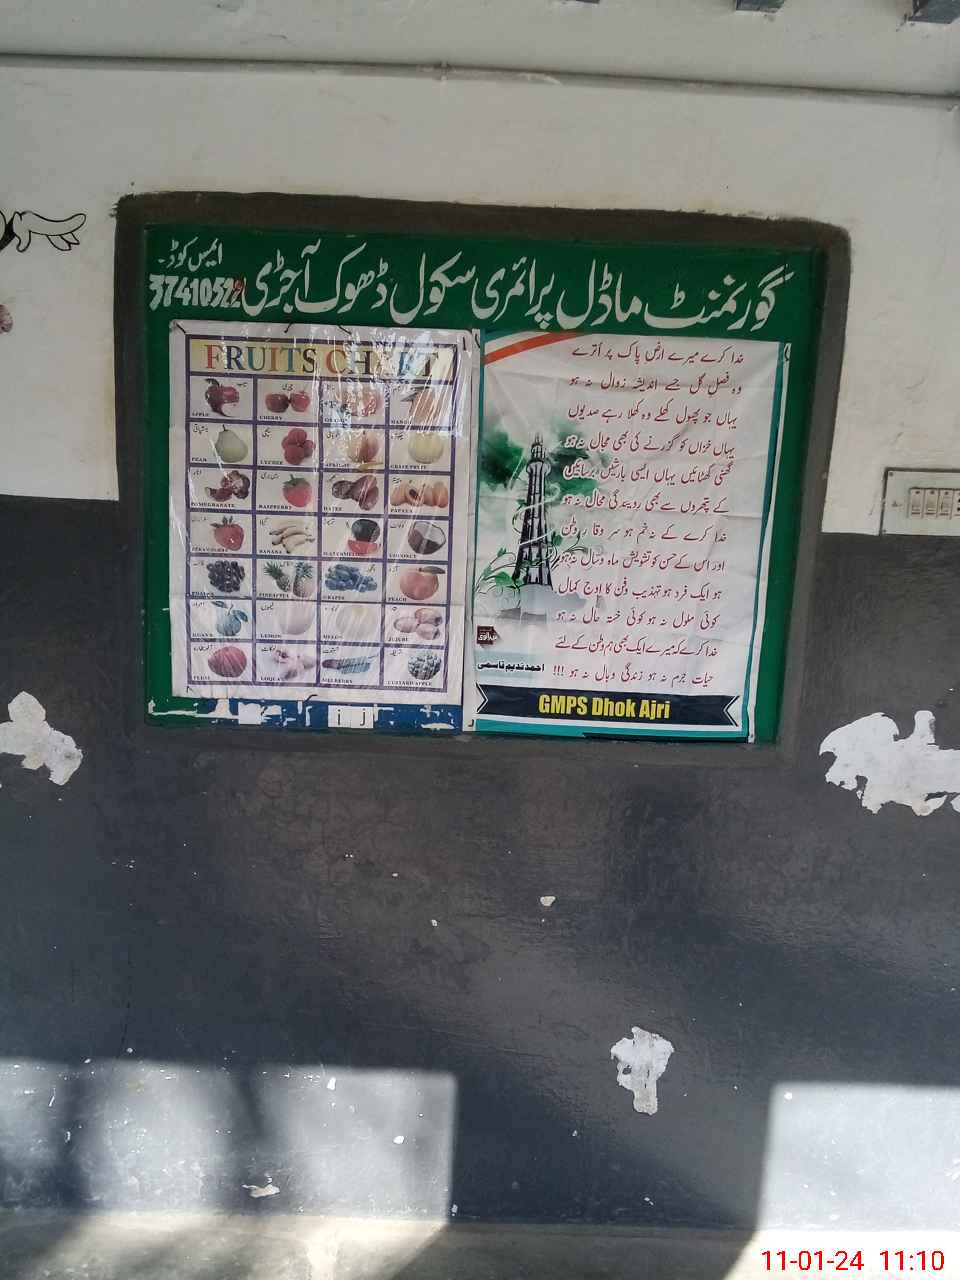 گورنمنٹ ماڈل پرائمری سکول ڈھوک آجڑی
ایمس کوڈ۔
37410522
FRUITS CHART
APPLE سیب
CHERRY چیری
ORANGE
MANGO
PEAR ناشپاتی
LYCHEE لیچی
APRICOT خوبانی
GRAPE FRUIT چکوترہ
POMEGRANATE انار
RASPBERRY رس بری
DATES کھجور
PAPAYA پپیتا
STRAWBERRY
BANANA کیلا
WATERMELON تربوز
COCONUT
PINEAPPLE
GRAPES انگور
PEACH آڑو
GUAVA امرود
LEMON لیموں
MELON
JUJUBE
PLUM آلو بخارہ
LOQUAT لوکاٹ
MULBERRY شہتوت
CUSTARD APPLE شریفہ
خدا کرے میرے ارض پاک پر اُترے
وہ فصلِ گل جسے اندیشہ زوال نہ ہو
یہاں جو پھول کھلے وہ کھلا رہے صدیوں
یہاں خزاں کو گزرنے کی بھی مجال نہ ہو
گھنی گھٹائیں یہاں ایسی بارشیں برسائیں
کے پتھروں سے بھی روئیدگی محال نہ ہو
خدا کرے کے نہ خم ہو سر وقار وطن
اور اس کے حسن کو تشویش ماہ و سال نہ ہو
ہو ایک فرد ہو تہذیب و فن کا اوج کمال
کوئی ملول نہ ہو کوئی خستہ حال نہ ہو
خدا کرے کہ میرے ایک بھی ہم وطن کے لئے
حیات جرم نہ ہو زندگی وبال نہ ہو !!!
احمد ندیم قاسمی
GMPS Dhok Ajri
11-01-24 11:10